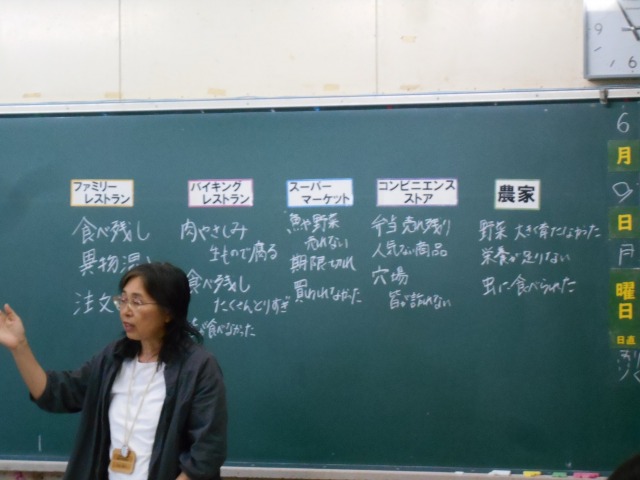 ファミリー
レストラン
食べ残し
異物混
注文
バイキング
レストラン
肉やさしみ
生もので腐る
食べ残し
たくさんとりすぎ
食べなかった
スーパー
マーケット
魚や野菜
売れない
期限切れ
買われなかった
コンビニエンス
ストア
弁当売れ残り
人気ない商品
穴場
農家
野菜 大きく育たなかった
栄養が足りない
虫に食べられた
6
月
9
日
月
曜
日
日直
9
6